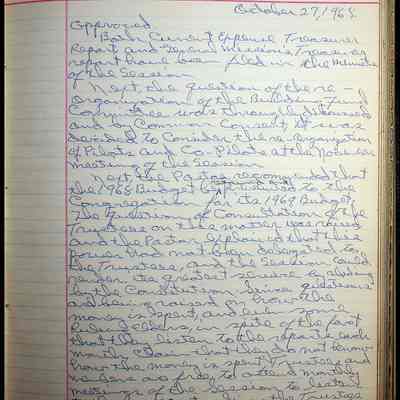 October 27, 1968
approved.
Both Current Expense Treasurer
Report and General Missions Treasurer
report have been filed in the Minutes
of the Session.
Next, the question of the re-
organization of the Building Fund
Committee was thoroughly discussed
and by Common Consent it was
decided to Consider the reorganization
of Pilots and Co-Pilots at the November
meeting of the Session.
Next the Pastor recommended that
the 1968 Budget be to the
Congregation for its 1969 Budget.
The Question of Consultation of the
Trustees on the matter was raised
and the Pastor explained that this
power had not been delegated to
the Trustees, and the Session could
render its greatest service by abiding
by the Constitution. Since questions
are being raised on how the
money is spent, and even some
Ruling Elders, in spite of the fact
that they listen to the reports each
month, claim that they do not know
how the money is spent, Trustees and
are free to attend monthly
meetings of the Session to listen
the Trustees